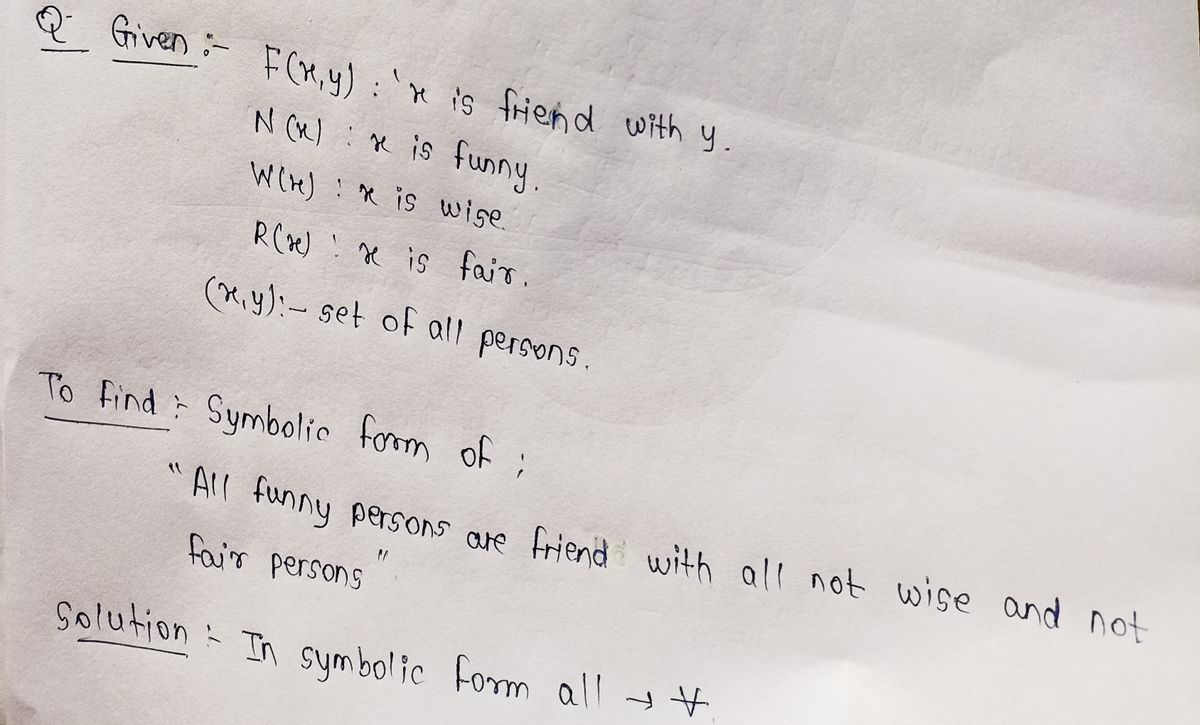 Q- Given :- F(x,y) : 'x is friend with y.
N(x) : x is funny.
W(x) : x is wise
R(x) : x is fair.
(x,y):- set of all persons.
To find :- Symbolic form of ;
"All funny persons are friend with all not wise and not
fair persons".
Solution :- In symbolic form all → ∀